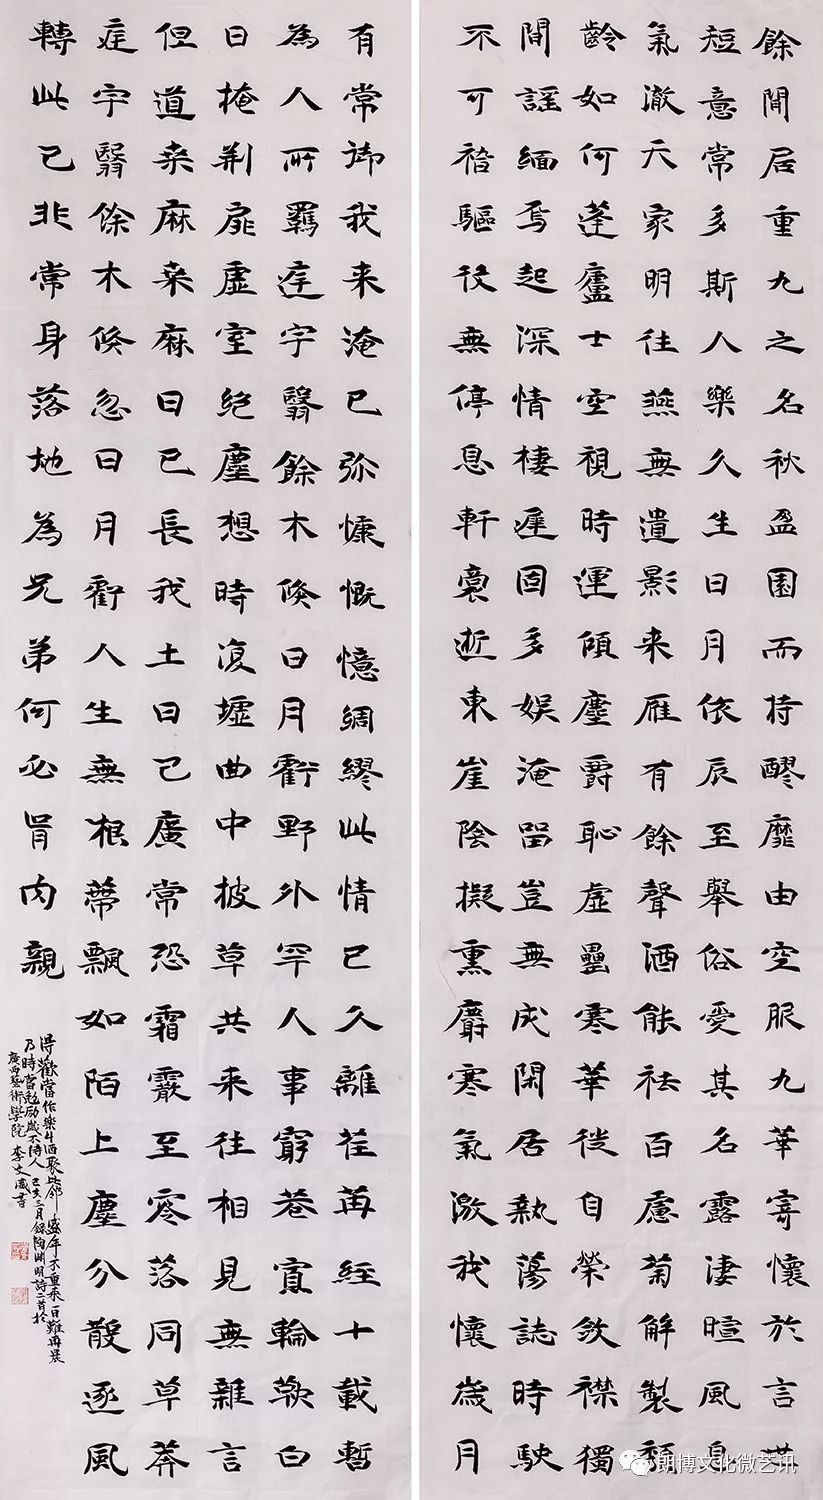 餘閒居重九之名秋盈園而持醪靡由空服九華寄懷於言世
短意常多斯人樂久生日月依辰至舉俗愛其名露淒暄風息
氣澈天家明往燕無遺影来雁有餘聲酒能祛百慮菊解製頹
齡如何蓬廬士空視時運傾塵爵恥虛罍寒華徙自榮斂襟獨
閒謠緬焉起深情棲遲固多娛淹留豈無成閑居執蕩誌時駛
不可稽驅役無停息軒裳逝東崖陰擬熏麝寒氣激我懷歲月
有常御我来淹已弥慷慨憶綢繆此情已久離荏苒經十載暫
為人所羈庭宇翳餘木倏日月虧野外罕人事窮巷寡輪鞅白
日掩荆扉虛室絕塵想時復墟曲中披草共来往相見無雜言
但道桑麻桑麻日已長我土日已廣常恐霜霰至零落同草莽
庭宇翳餘木倏忽日月虧人生無根蒂飄如陌上塵分散逐風
轉此已非常身落地為兄弟何必骨肉親
得歡當作樂斗酒聚比鄰盛年不重来一日難再晨
及時當勉勵歲不待人 己亥三月錄陶淵明詩二首於
廣西藝術學院 李文書
朗博文化微艺讯